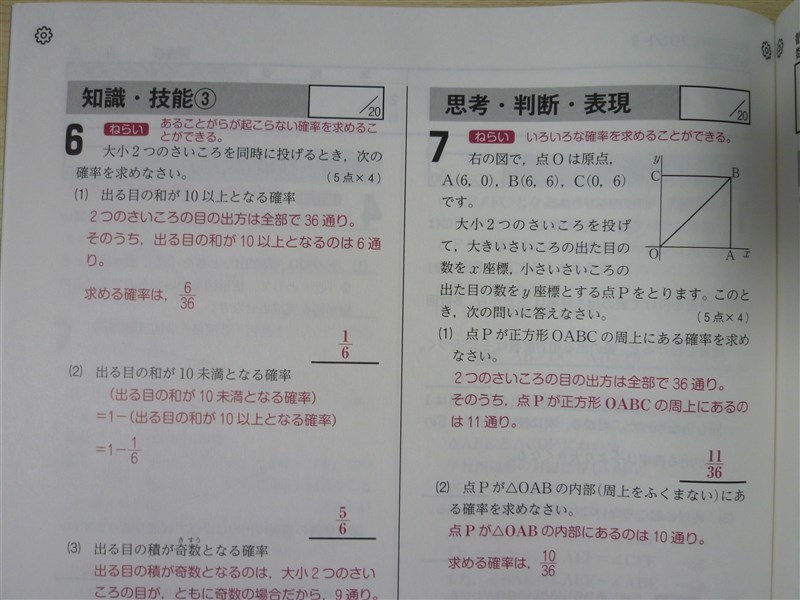 知識・技能③
/20
6
ねらい あることがらが起こらない確率を求めるこ
とができる。
大小2つのさいころを同時に投げるとき,次の
確率を求めなさい。 (5点×4)
(1) 出る目の和が10以上となる確率
2つのさいころの目の出方は全部で36通り。
そのうち,出る目の和が10以上となるのは6通
り。
求める確率は, 6/36
1/6
(2) 出る目の和が10未満となる確率
(出る目の和が10未満となる確率)
=1−(出る目の和が10以上となる確率)
=1−1/6
5/6
(3) 出る目の積が奇数となる確率
きすう
出る目の積が奇数となるのは,大小2つのさい
ころの目が,ともに奇数の場合だから,9通り。
思考・判断・表現
/20
7
ねらい いろいろな確率を求めることができる。
右の図で,点Oは原点,
A(6, 0),B(6, 6),C(0, 6)
です。
大小2つのさいころを投げ
て,大きいさいころの出た目の
数をx座標,小さいさいころの
出た目の数をy座標とする点Pをとります。このと
き,次の問いに答えなさい。 (5点×4)
y
C
B
O
A
x
(1) 点Pが正方形OABCの周上にある確率を求め
なさい。
2つのさいころの目の出方は全部で36通り。
そのうち,点Pが正方形OABCの周上にあるの
は11通り。
11/36
(2) 点Pが△OABの内部(周上をふくまない)にあ
る確率を求めなさい。
点Pが△OABの内部にあるのは10通り。
求める確率は, 10/36